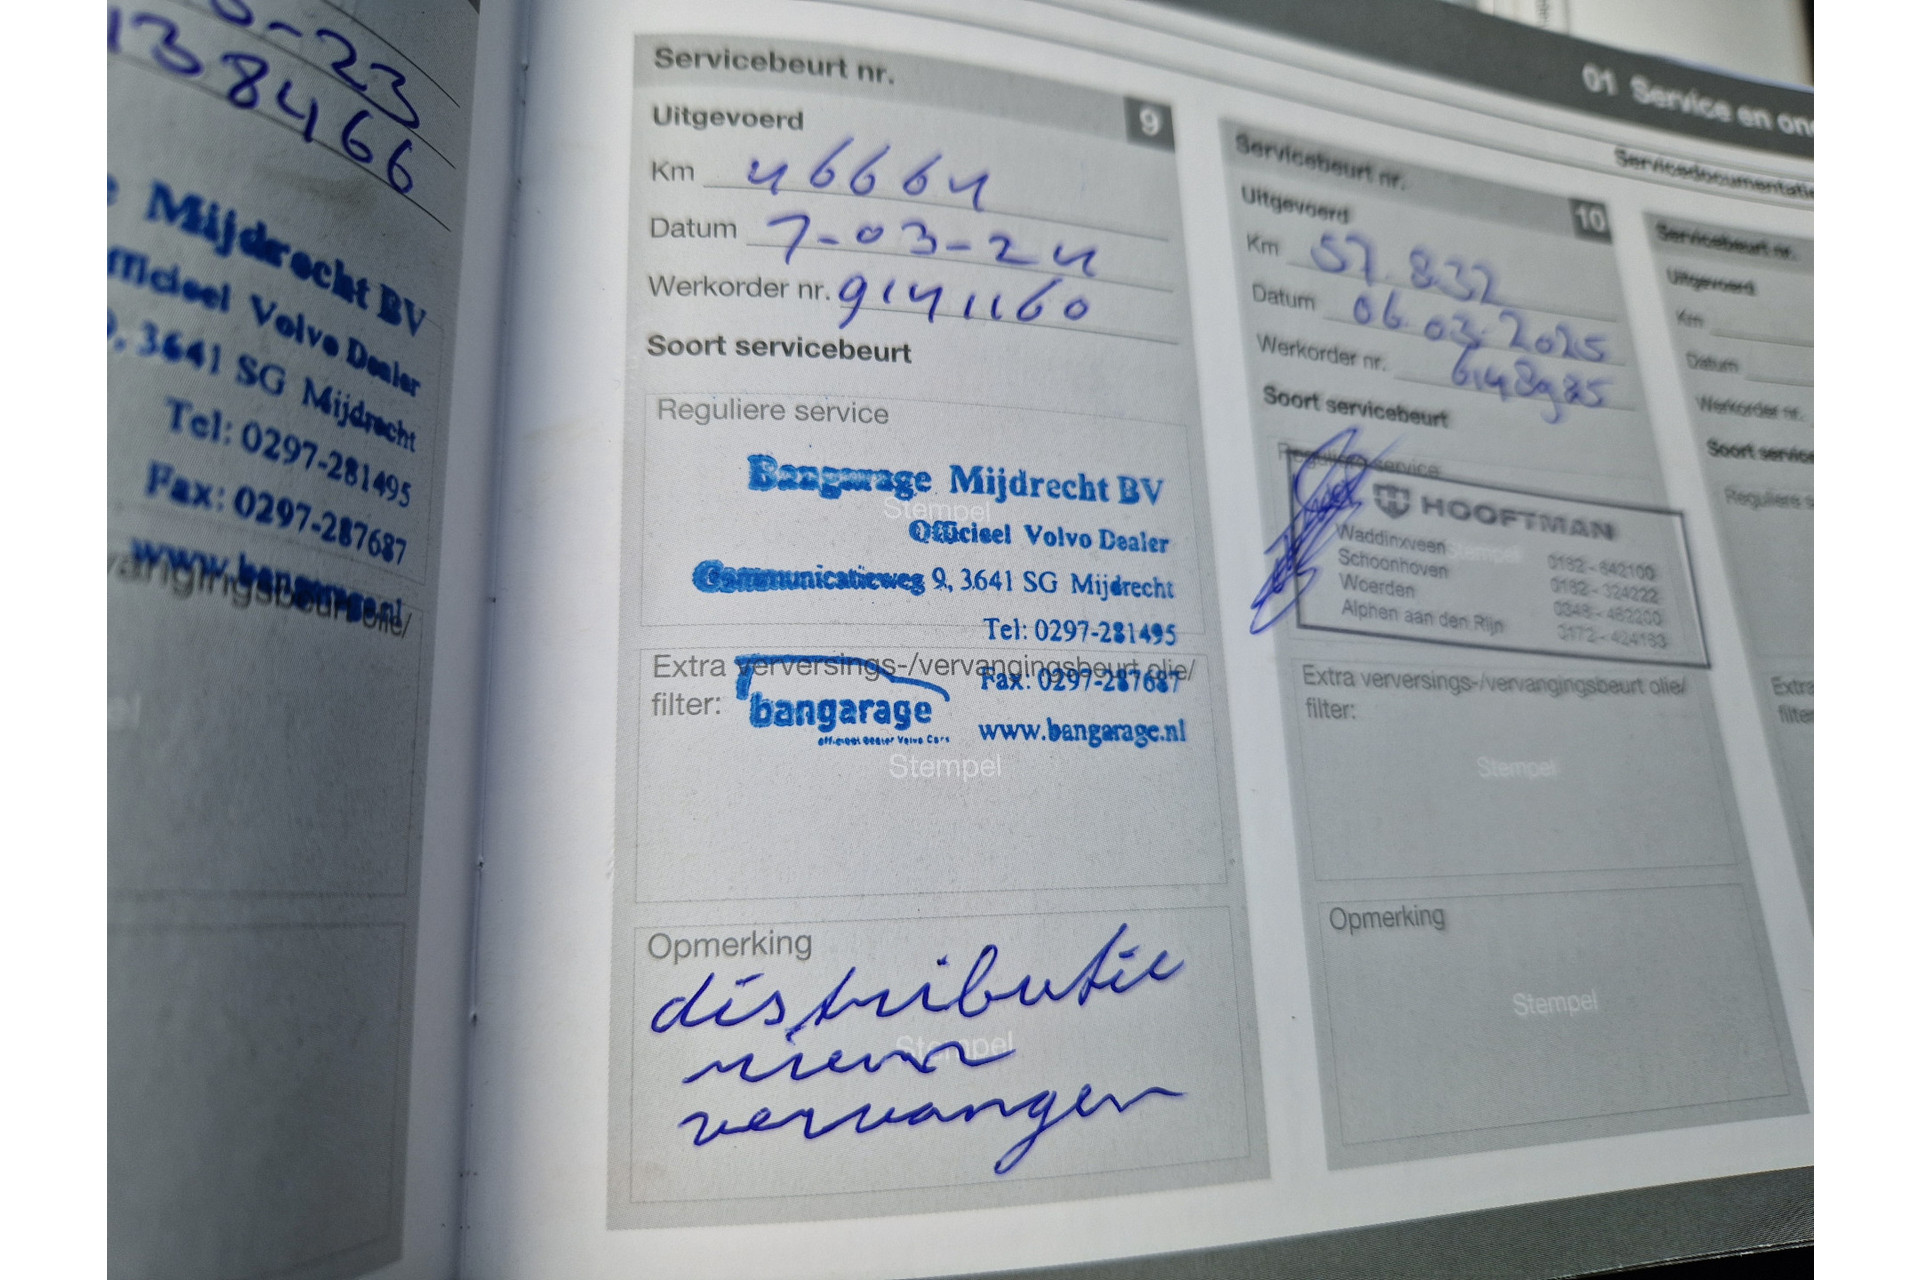 -23
138466
Mijdrecht BV
Volvo Dealer
9, 3641 SG Mijdrecht
Tel: 0297-281495
Fax: 0297-287687
www.bangarage.nl
Servicebeurt nr. 9
Uitgevoerd
Km 46664
Datum 7-03-24
Werkorder nr. 9141160
Soort servicebeurt
Reguliere service
Stempel
Bangarage Mijdrecht BV
Officieel Volvo Dealer
Communicatieweg 9, 3641 SG Mijdrecht
Tel: 0297-281495
Extra verversings-/vervangingsbeurt olie/
filter:
Fax: 0297-287687
bangarage
officieel dealer Volvo Cars
www.bangarage.nl
Stempel
Opmerking
Stempel
distributie
riem
vervangen
01 Service en
Servicedocumentatie
Servicebeurt nr. 10
Uitgevoerd
Km 57.832
Datum 06.03.2025
Werkorder nr. 6148985
Soort servicebeurt
Reguliere service
Stempel
HOOFTMAN
Waddinxveen 0182-642100
Schoonhoven 0182-324222
Woerden 0348-482200
Alphen aan den Rijn 0172-424183
Extra verversings-/vervangingsbeurt olie/
filter:
Stempel
Opmerking
Stempel
Servicebeurt nr.
Uitgevoerd
Km
Datum
Werkorder nr.
Soort service
Reguliere
Extra
filter